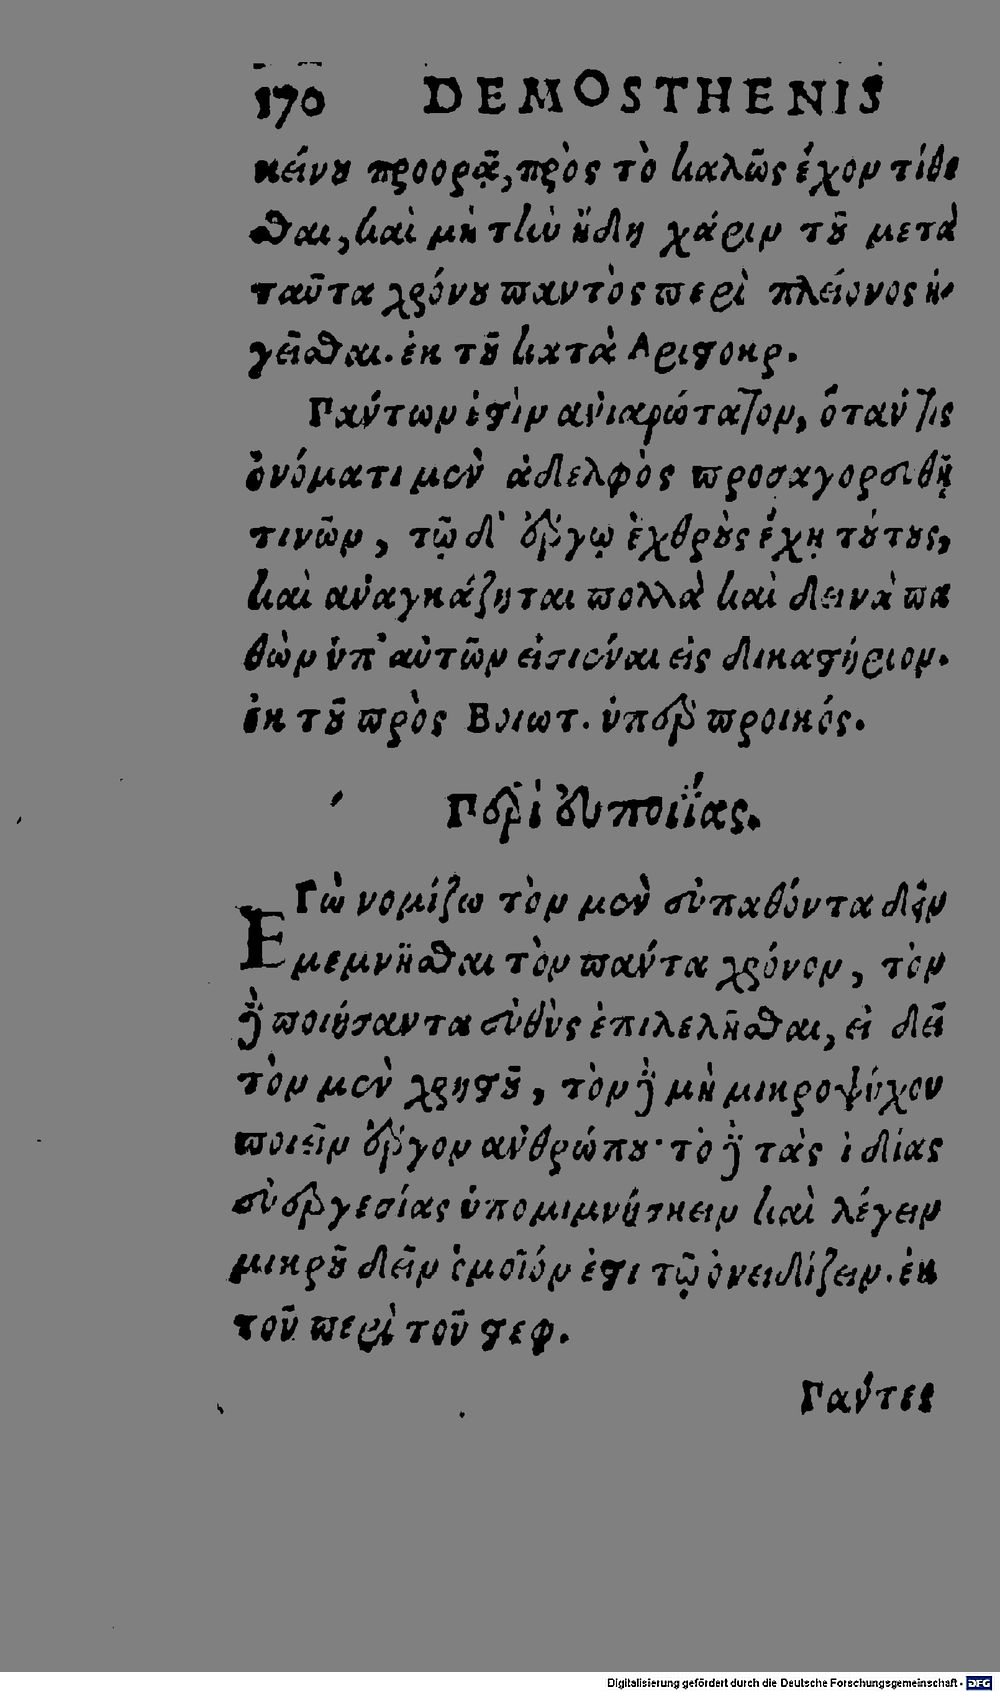 170 DEMOSTHENIS
κείνου προορᾷ, πρὸς τὸ καλῶς ἔχον τίθε
σθαι, καὶ μὴ τὴν ἤδη χάριν τοῦ μετὰ
ταῦτα χρόνου παντὸς περὶ πλείονος ἡ-
γεῖσθαι. ἐκ τοῦ κατὰ Αριστοκρ.
Πάντων ἐστὶν ἀνιαρώτατον, ὅταν τις
ὀνόματι μὲν ἀδελφὸς προσαγορευθῇ
τινῶν, τῷ δ' ἔργῳ ἐχθροὺς ἔχῃ τούτους,
καὶ ἀναγκάζηται πολλὰ καὶ δεινὰ πα
θὼν ὑπ' αὐτῶν εἰσιέναι εἰς δικαστήριον.
ἐκ τοῦ πρὸς Βοιωτ. ὑπὲρ προικός.
Περὶ εὐποιΐας.
ΕΓὼ νομίζω τὸν μὲν εὐπαθόντα δεῖν
μεμνῆσθαι τὸν πάντα χρόνον, τὸν
δὲ ποιήσαντα εὐθὺς ἐπιλελῆσθαι, εἰ δεῖ
τὸν μὲν χρηστοῦ, τὸν δὲ μὴ μικροψύχου
ποιεῖν ἔργον ἀνθρώπου· τὸ δὲ τὰς ἰδίας
εὐεργεσίας ὑπομιμνήσκειν καὶ λέγειν
μικροῦ δεῖν ὅμοιόν ἐστι τῷ ὀνειδίζειν. ἐκ
τοῦ περὶ τοῦ στεφ.
Πάντες
Digitalisierung gefördert durch die Deutsche Forschungsgemeinschaft - DFG